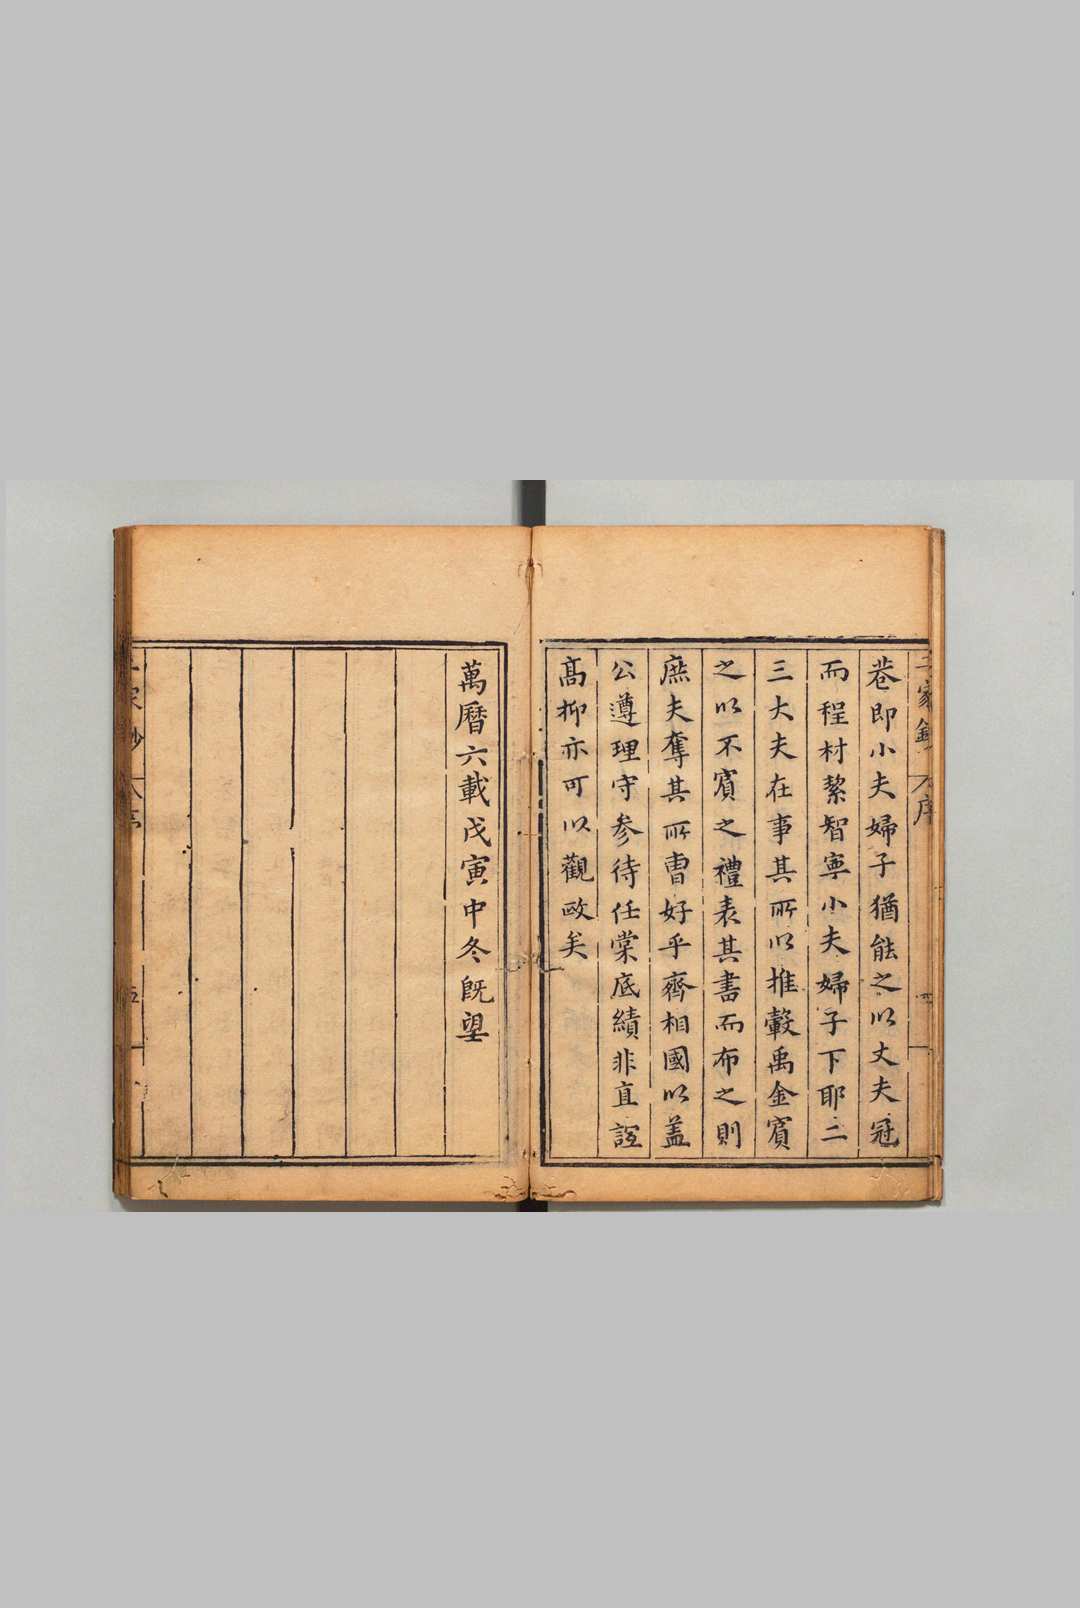 巷即小夫婦子猶能之以丈夫冠
而程材絜智寧小夫婦子下耶二
三大夫在事其所以推轂禹金賓
之以不賓之禮表其書而布之則
庶夫奪其所曹好乎齊相國以蓋
公遵理守参待任棠底績非直誼
髙抑亦可以觀政矣
萬曆六載戊寅中冬旣望